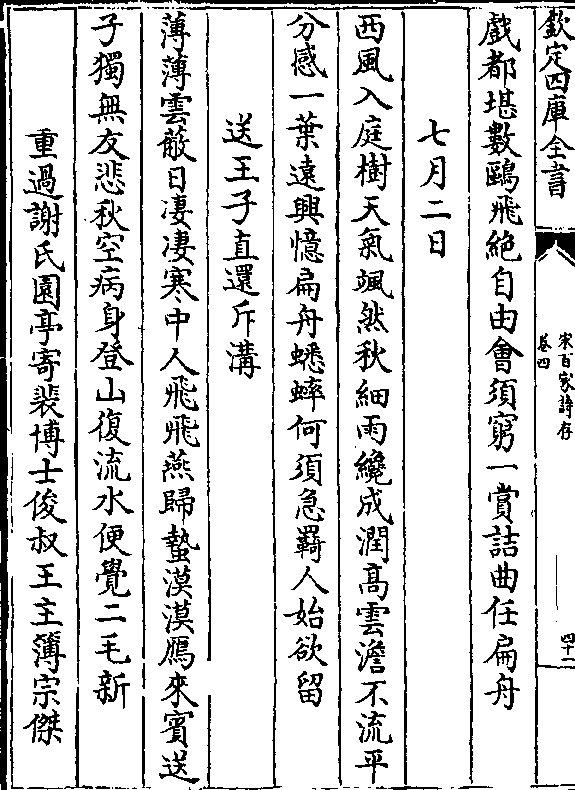 欽定四庫全書
宋百家詩存
卷四
四十二
戲都堪數鷗飛絶自由會須窮一賞詰曲任扁舟
七月二日
西風入庭樹天氣颯然秋細雨纔成潤高雲澹不流平
分感一葉遠興憶扁舟蟋蟀何須急羇人始欲留
送王子直還斥溝
薄薄雲蔽日凄凄寒中人飛飛燕歸蟄漠漠鴈來賓送
子獨無友悲秋空病身登山復流水便覺二毛新
重過謝氏園亭寄裴博士俊叔王主簿宗傑